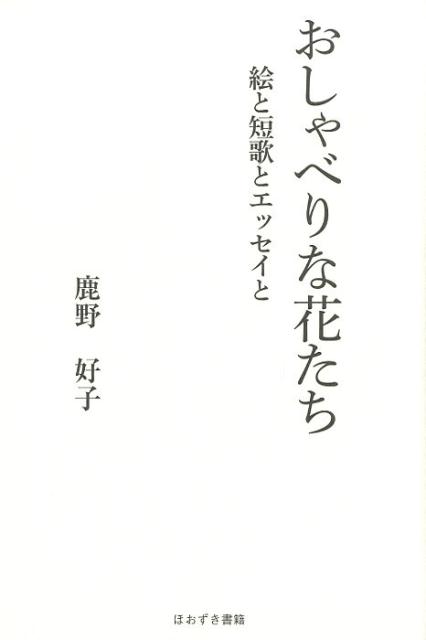 おしゃべりな花たち
絵と短歌とエッセイと
鹿野 好子
ほおずき書籍